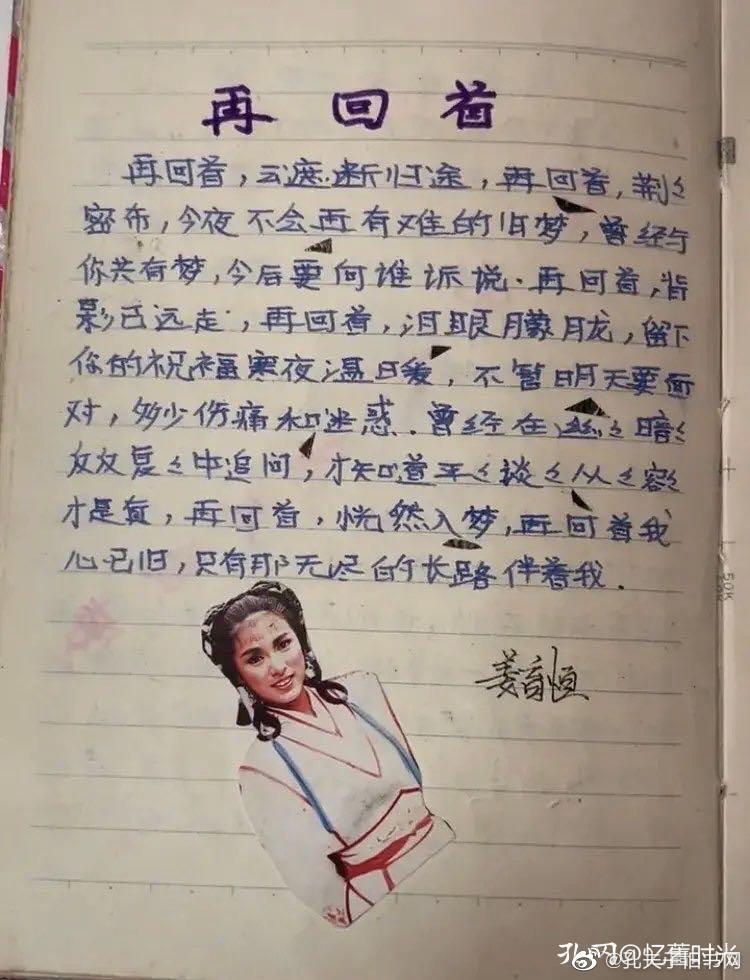 再回首
再回首，云遮断归途，再回首，荆々
密布，今夜不会再有难的旧梦，曾经与
你共有梦，今后要向谁诉说．再回首，背
影已远走，再回首，泪眼朦胧，留下
你的祝福寒夜温暖，不管明天要面
对，多少伤痛和迷惑．曾经在丝々暗々
反反复々中追问，才知道平々谈々从々容々
才是真，再回首，恍然入梦，再回首我
心已旧，只有那无尽的长路伴着我．
姜育恒
50K
孔网@忆舊时光
@孔夫子旧书网